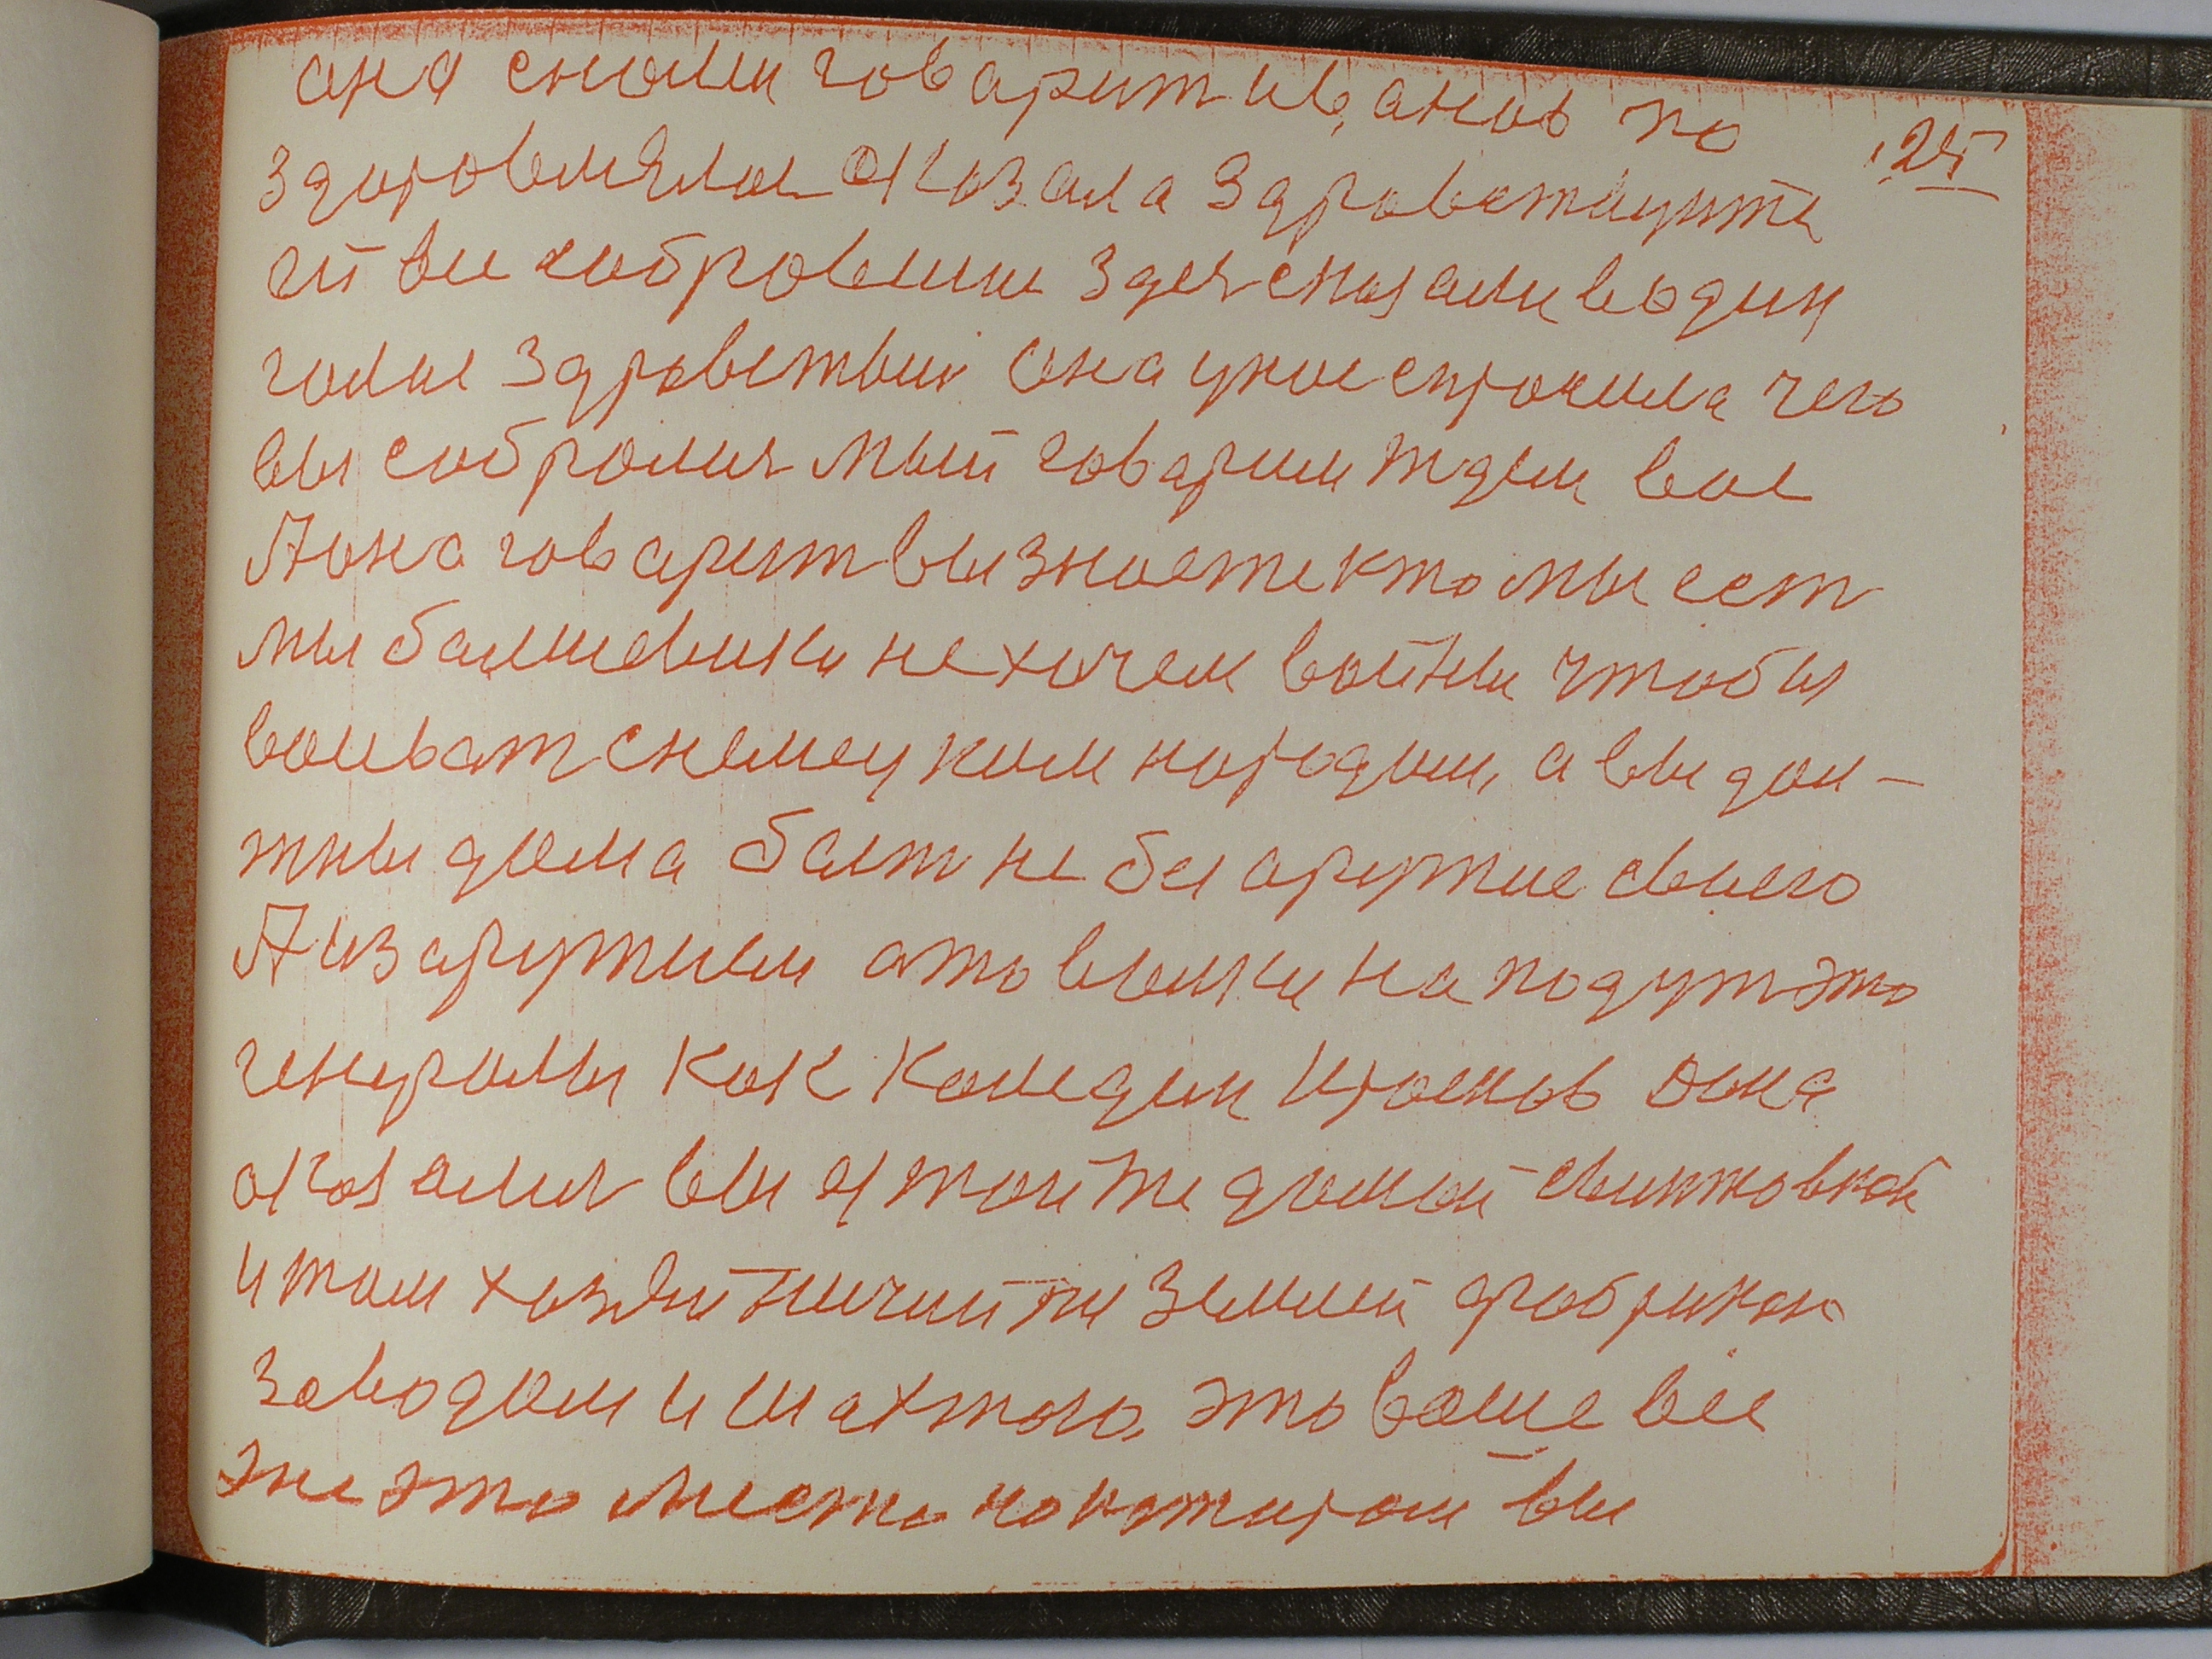 она снами говарит ив, анов по
25
здоровлялас сказала здравствуите
ги все собровшие здес сказали водин
голас здравствий она унас спросила чего
вы собролис мый говарим ждем вас
А она говарит вы знаете кто мы ест
мы балшевики не хочем войны чтобы
воиват снемецким народом, а вы дол-
жны дома быт не бз аружие своего
А из аружием ато веики нападут это
генералы как Каледин Краснов она
сказалис вы стойте домой свинтовкой
и там хозяйничийте землий фабрикой
заводам и шахтою, это ваше все
это место на катарой вы